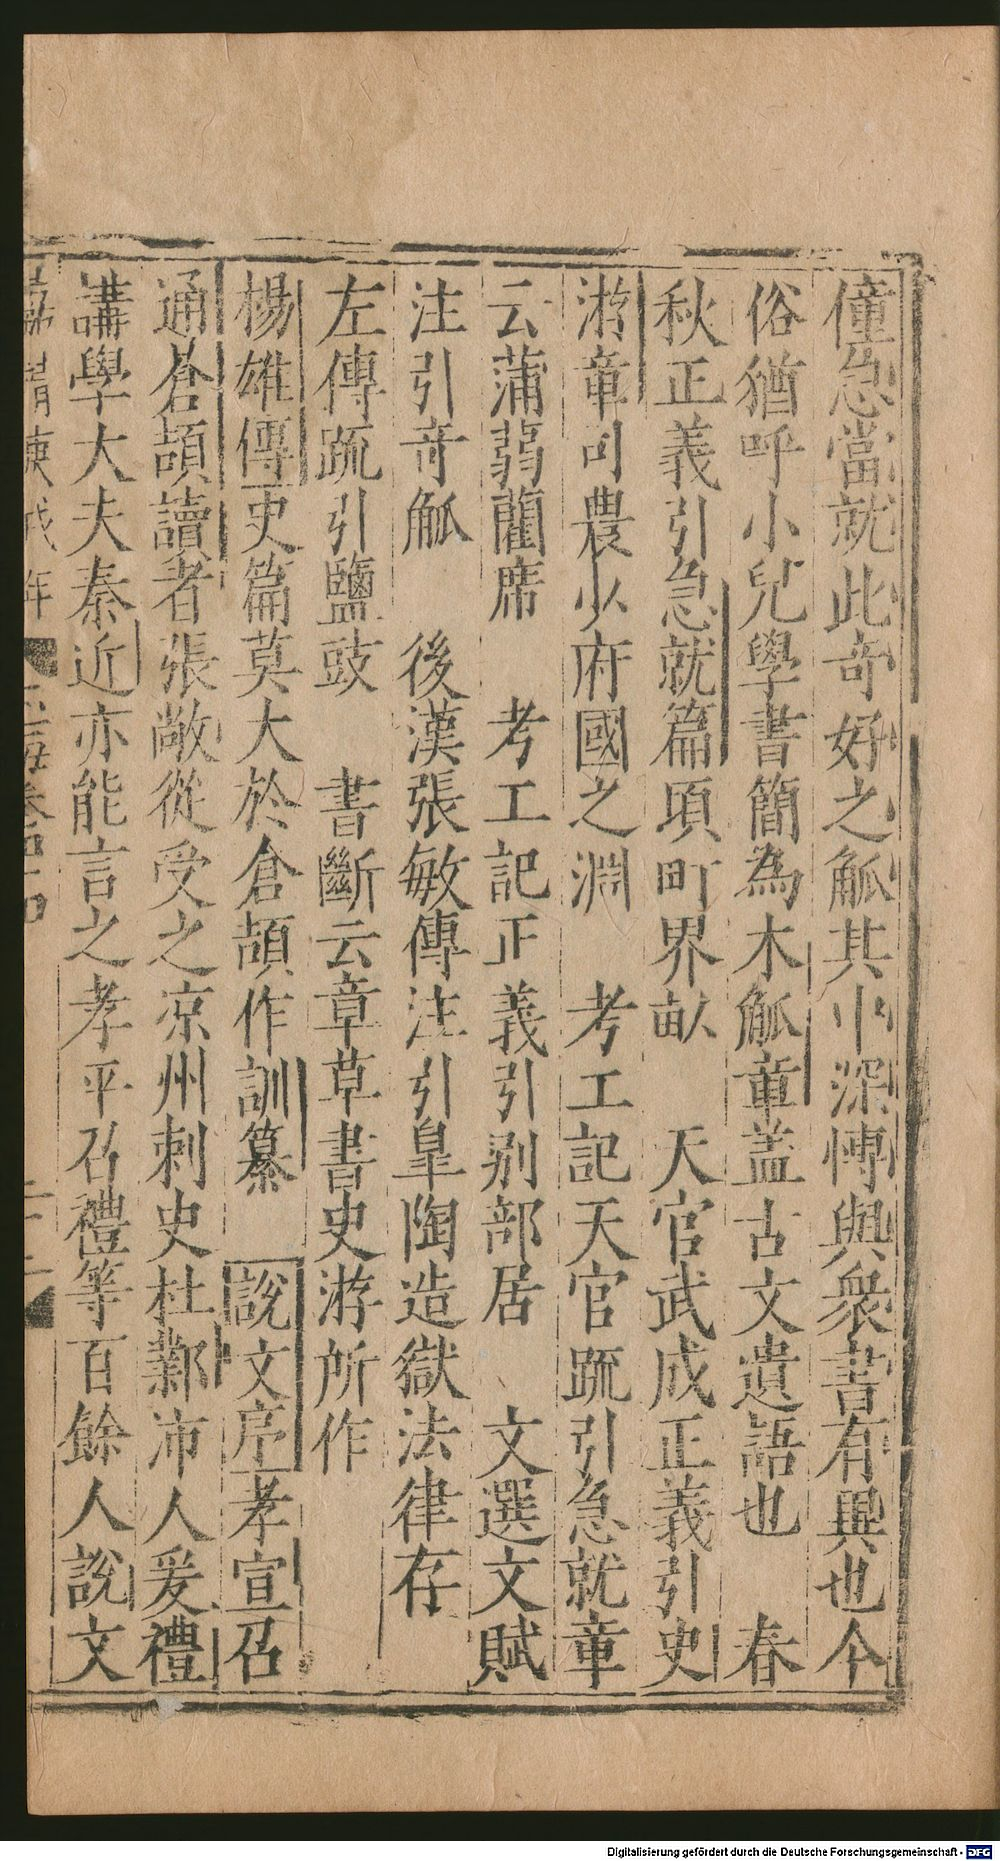 僮急當就此奇好之觚其中深愽與衆書有異也今
俗猶呼小兒學書簡為木觚章盖古文遺語也　春
秋正義引急就篇項町界畝　天官武成正義引史
游章司農少府國之淵　考工記天官疏引急就章
云蒲蒻藺席　考工記正義引别部居　文選文賦
注引奇觚　後漢張敏傳注引皐陶造獄法律存
左傳疏引鹽豉　書斷云章草書史游所作
楊雄傳史篇莫大於倉頡作訓纂　說文序孝宣召
通倉頡讀者張敞從受之凉州刺史杜鄴沛人爰禮
講學大夫秦近亦能言之孝平召禮等百餘人說文
庚戌年
卷四十四
二十二
Digitalisierung gefördert durch die Deutsche Forschungsgemeinschaft - DFG